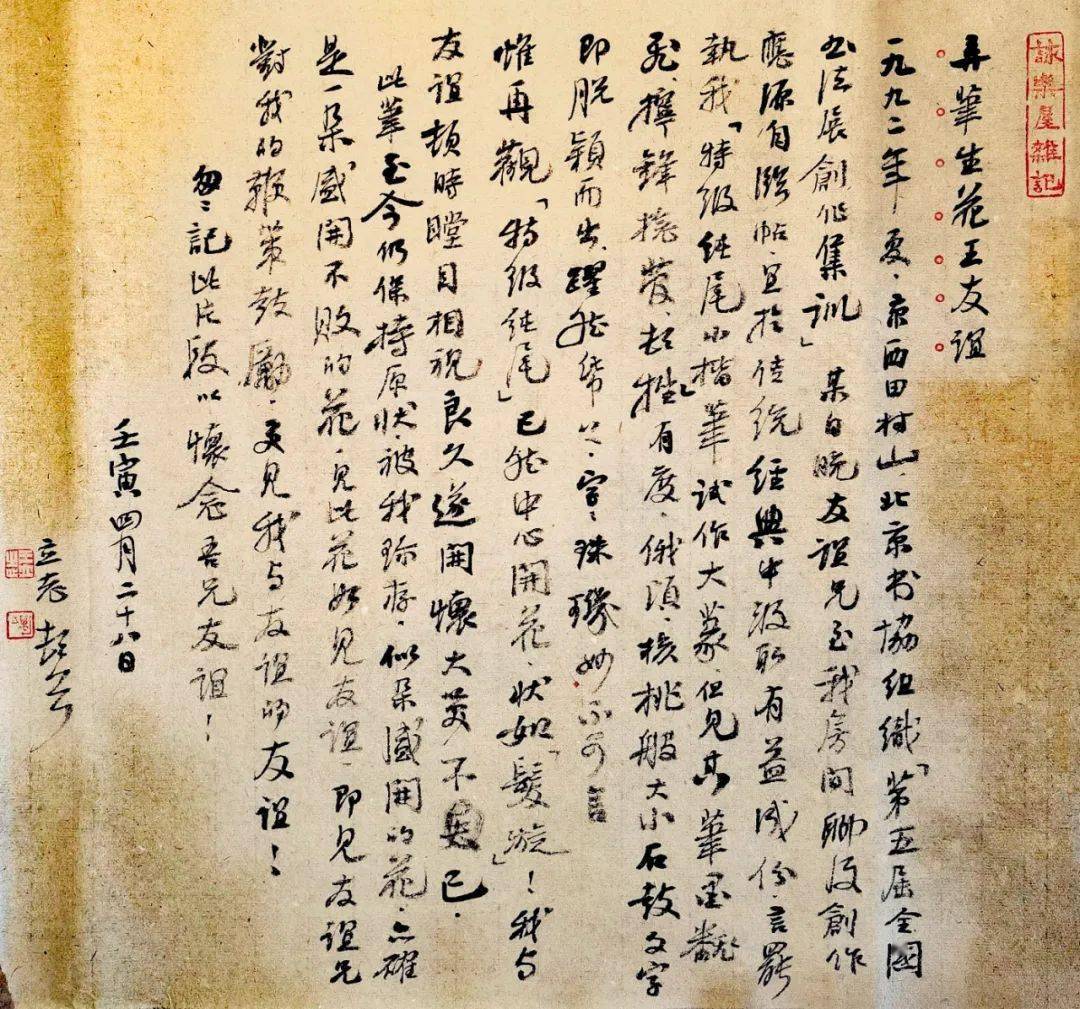 詠樂屋雜記
弄筆生花王友誼
一九九二年夏，京西田村山，北京书協组織「第五届全國
书法展創作集訓」某日晚友誼兄至我房間聊及創作
應源自臨帖，宜於传统經典中汲取有益成份，言罷
執我「特级纯尾小楷筆」試作大篆，但见其筆墨翻
飛，擰鋒捻管，起挫有度，俄頃，核桃般大小石鼓文字
即脱穎而出，躍然紙上，字字珠璣妙不可言
惟再觀「特级纯尾」已然中心開花，状如「髮旋」！我与
友誼頓時瞠目相視良久遂開懷大笑不已，
此筆至今仍保持原状，被我珍存，似朵盛開的花，亦確
是一朵盛開不败的花，见此花如见友誼，即见友誼兄
對我的鞭策鼓勵，更见我与友誼的友誼！
匆匆記此片段以懷念吾兄友誼！
壬寅四月二十八日
立志